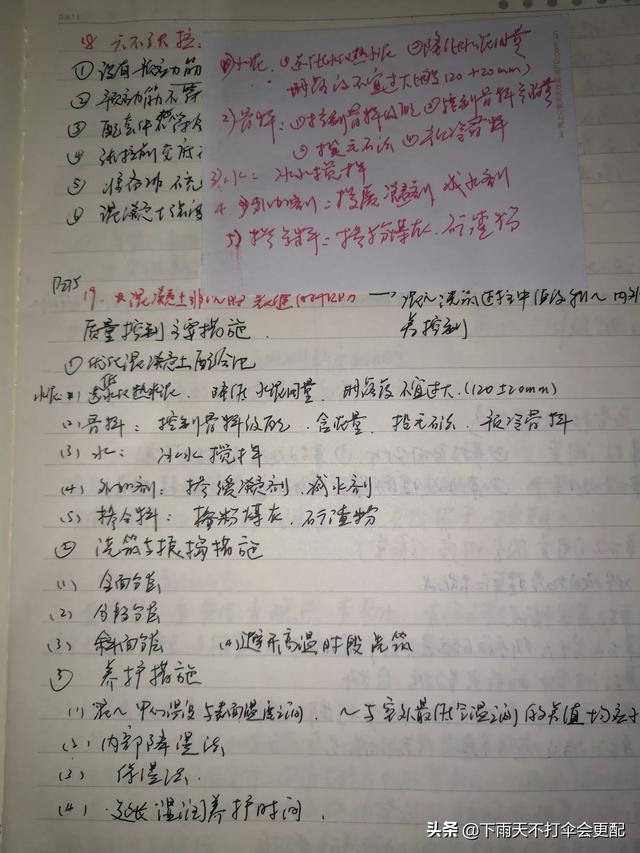 DATE
① 设有预应力筋
② 预应力筋不
③ 配套件
④ 张拉
⑥ 混凝土强度
①水泥 ①选低水化热水泥 ②降低水泥用量
坍落度不宜过大(120±20mm)
2)骨料：①控制骨料级配 ②控制骨料含泥量
③投毛石法 ④预冷骨料
3)水：冰水搅拌
4 外加剂：掺缓凝剂 减水剂
5)掺合料：掺粉煤灰、矿渣粉
P275
19. 大混凝土
质量控制主要措施
差控制
①优化混凝土配合比
水泥 选低水化热水泥 降低水泥用量 坍落度不宜过大.(120±20mm)
(2)骨料：控制骨料级配、含泥量、投毛石法、预冷骨料
(3)水：冰水搅拌
(4)外加剂：掺缓凝剂、减水剂
(5)掺合料：掺粉煤灰、矿渣粉
② 浇筑与振捣措施
(1) 全面分层
(2) 分段分层
(3) 斜面分层 (4)避开高温时段浇筑
③ 养护措施
(1)混～中心温度与表面温度之间、～与室外最低气温之间的差值均应
(2)内部降温法
(3) 保温法.
(4) 延长湿润养护时间.
头条 @下雨天不打伞会更配